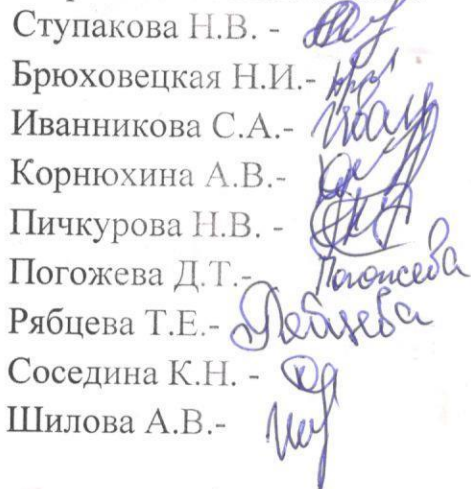 Ступакова Н.В. -
Брюховецкая Н.И.-
Иванникова С.А.-
Корнюхина А.В.-
Пичкурова Н.В. -
Погожева Д.Т.- Погожева
Рябцева Т.Е.- Рябцева
Соседина К.Н. -
Шилова А.В.-